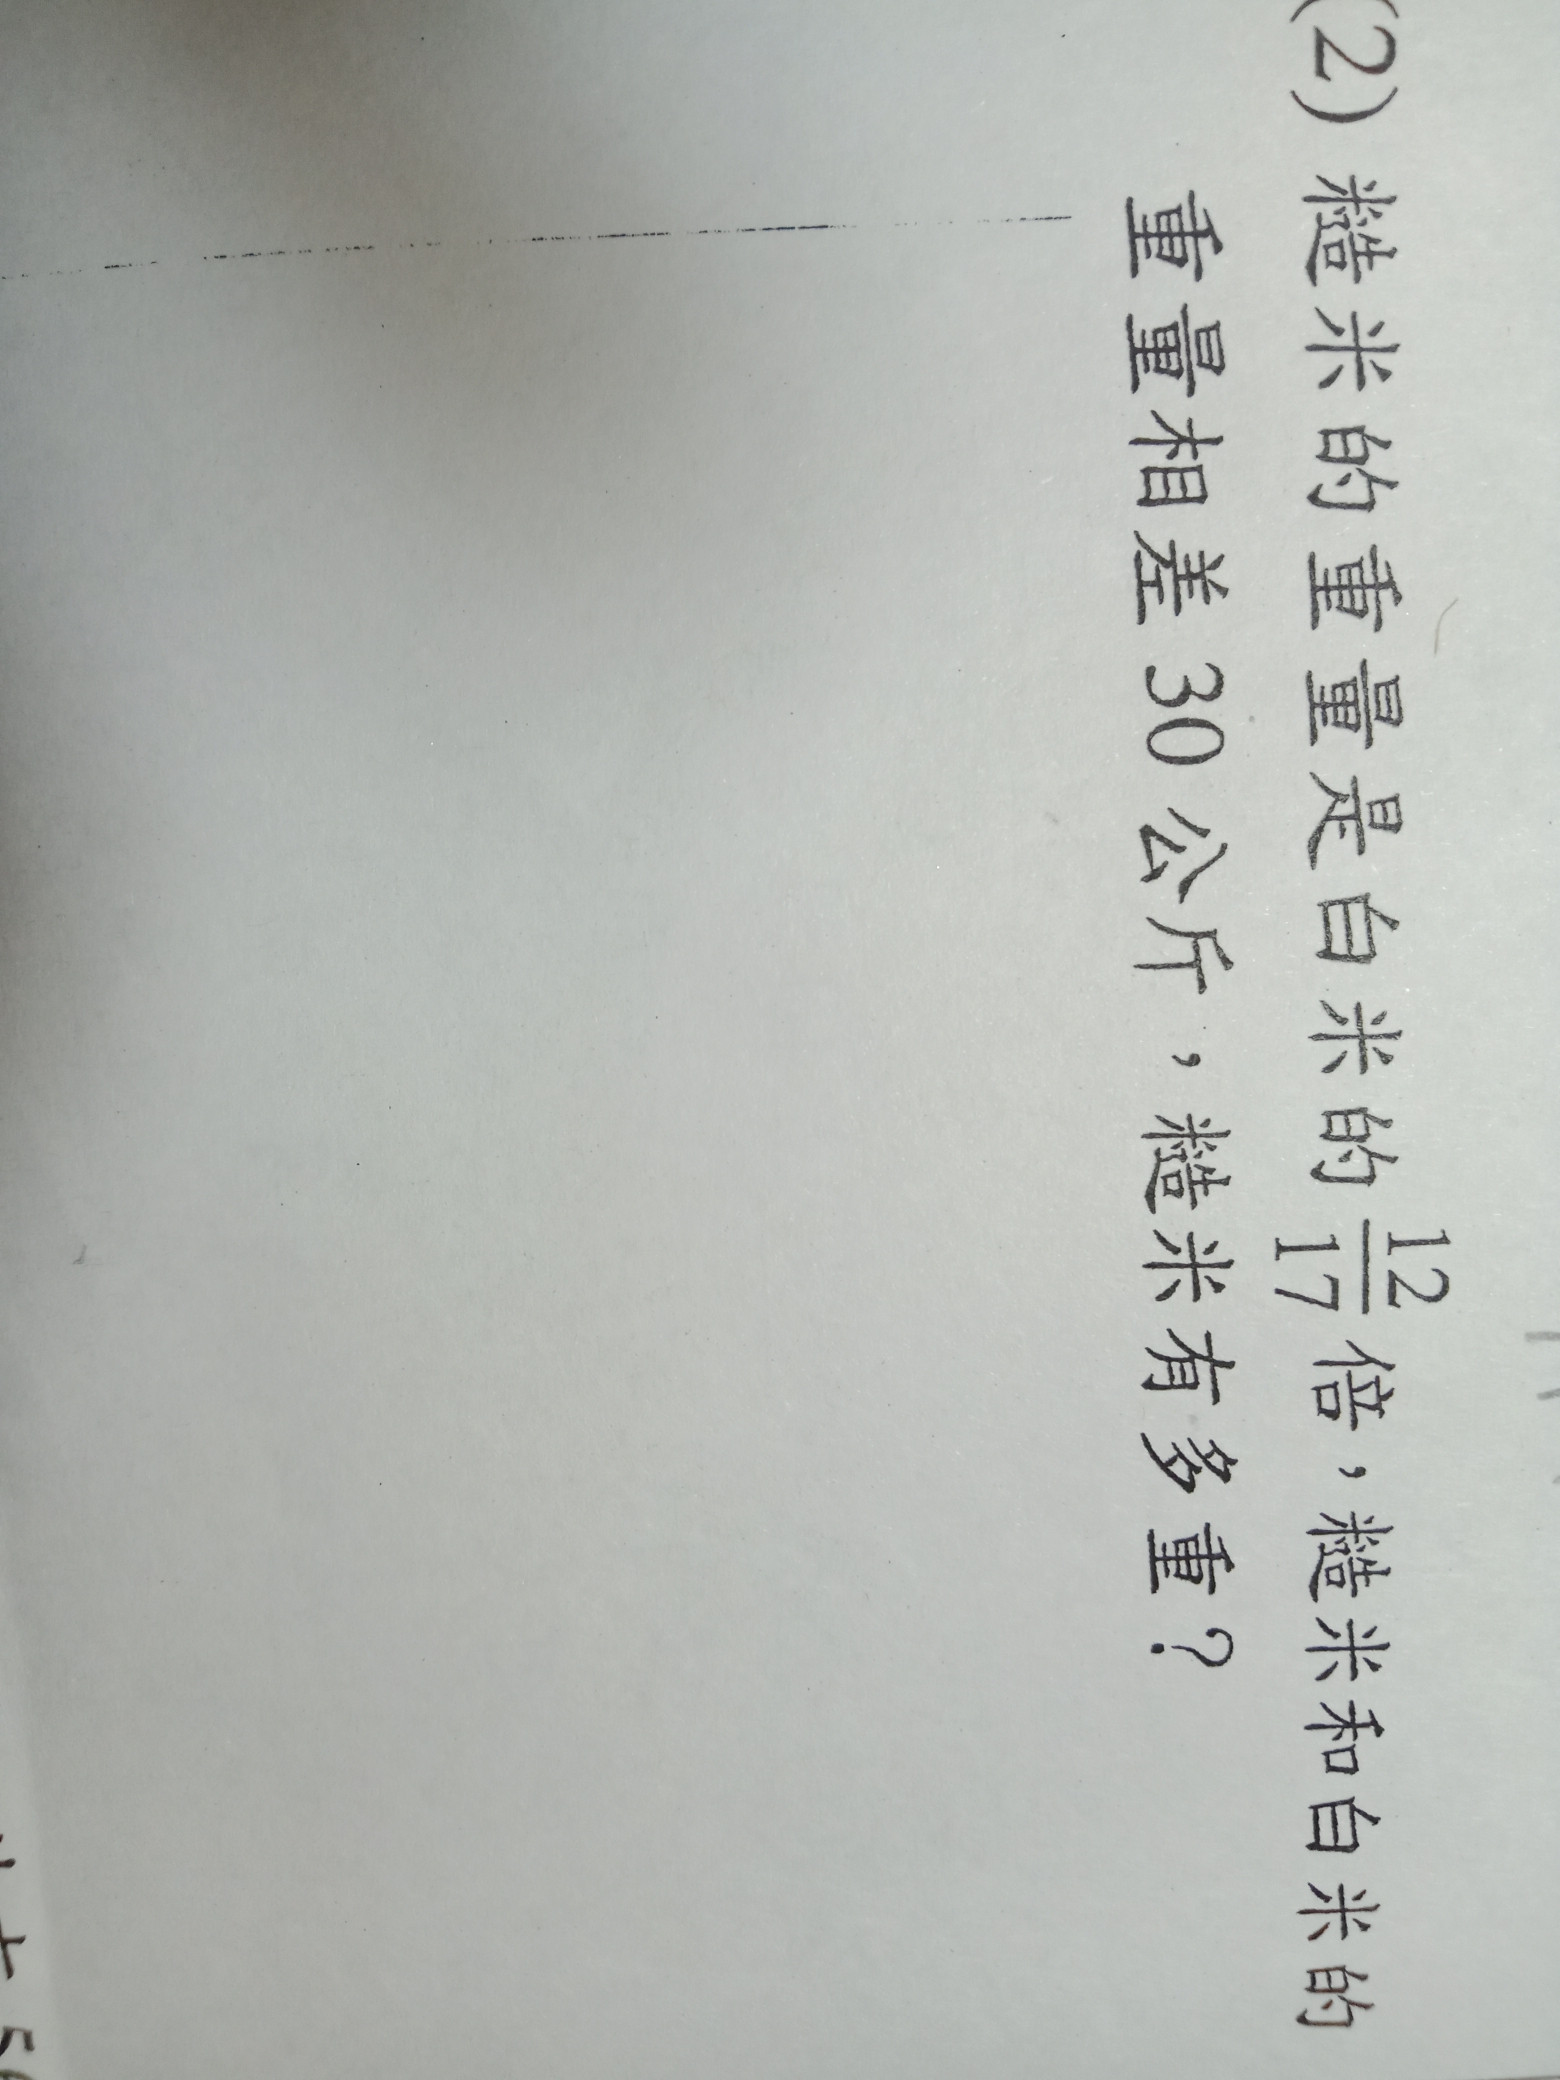 (2) 糙米的重量是白米的 12/17 倍,糙米和白米的
重量相差 30 公斤,糙米有多重?